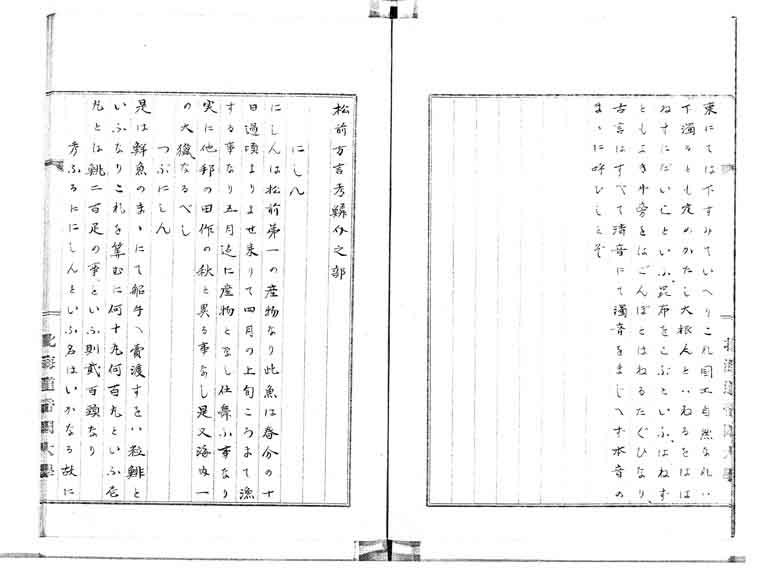 東にては下すみていへりこれ國土自然なれハ
下濁るとも定めかたし大根んといねるをはは
ねすにだいことといふ昆布をこぶといふはねす
ともよき牛旁をはごんぼとはねるたぐひなり
古言はすべて清音にて濁音をまじへす本音の
まゝに呼ひしとぞ
松前方言考鯡分之部
にしん
にしんは松前第一の産物なり此魚は春分の十
日過頃よりよせ来りて四月の上旬ころまて漁
する事なり五月迄に産物となし仕舞ふ事なり
実に他邦の田作の秋と異る事なし是又海内一
の大獵なるべし
つぶにしん
是は鮮魚のまゝにて船手へ賣渡すをハ粒鯡と
いふなりこれを算むに何十丸何百丸といふ壱
丸とは鯡二百疋の事といふ則貮百頭なり
考ふるににしんといふ名はいかなる故に
北海道帝国大學
北海道帝国大學